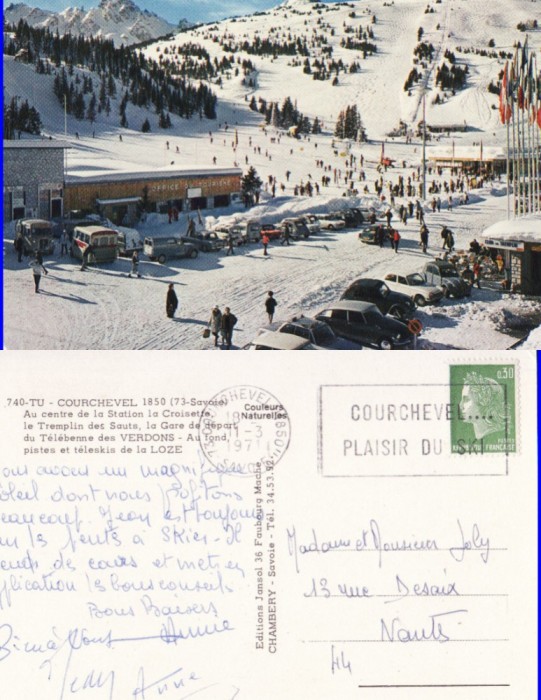 OFFICE
740-TU - COURCHEVEL 1850 (73-Savoie)
Au centre de la Station la Croisette,
le Tremplin des Sauts, la Gare de départ
du Télébenne des VERDONS - Au fond,
pistes et téléskis de la LOZE
Couleurs
Naturelles
COURCHEVEL 1850
18
-3
1971
SAVOIE
COURCHEVEL....
PLAISIR DU SKI
0,30
POSTES
FRANÇAISE
Editions Jansol 36 Faubourg Mache
CHAMBERY - Savoie - Tél. 34.53.92
avons un magnifique
soleil dont nous profitons
beaucoup. Jean est toujours
sur les pentes à skier. Il
prend des cours et met en
application les bons conseils.
Bons Baisers
Annie
Jean Anne
Madame et Monsieur Joly
13 rue Desaix
Nantes
44